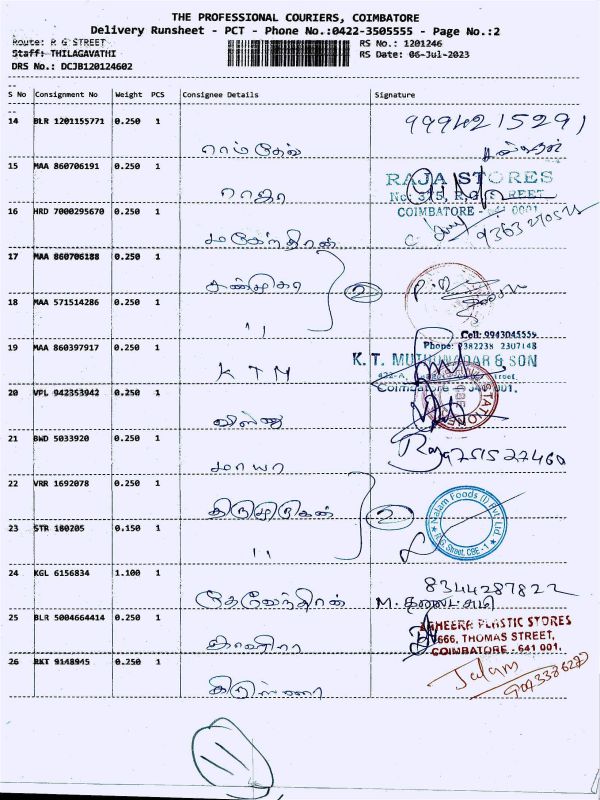 THE PROFESSIONAL COURIERS, COIMBATORE
Delivery Runsheet - PCT - Phone No.:0422-3505555 - Page No.:2
Route: R G STREET
Staff: THILAGAVATHI
DRS No.: DCJB120124602
RS No.: 1201246
RS Date: 06-Jul-2023
S No Consignment No Weight PCS Consignee Details Signature
14 BLR 1201155771 0.250 1
ராம்தேவ் 9994215291
15 MAA 860706191 0.250 1
ராஜா RAJA STORES
No: 375, R.G. STREET
16 HRD 7000295670 0.250 1 COIMBATORE - 641 0001
மகேந்திரன்
17 MAA 860706188 0.250 1
சண்முகா 2
18 MAA 571514286 0.250 1
" Cell: 9943045559
19 MAA 860397917 0.250 1 Phone: 2382238 2307148
K. T. MUTHUNADAR & SON
KTM Coimbatore - 641 001.
20 VPL 942353942 0.250 1
விஷ்ணு
21 BWD 5033920 0.250 1
மாயா Raja
22 VRR 1692078 0.250 1
திருமுருகன் 2 Nalam Foods (I) Pvt. Ltd.
R.G. Street, CBE - 1
23 STR 180205 0.150 1
"
24 KGL 6156834 1.100 1 8344287822
தேவேந்திரன்
25 BLR 5004664414 0.250 1 ZAHEERA PLASTIC STORES
666, THOMAS STREET,
காவிரி COIMBATORE - 641 001.
26 RKT 9148945 0.250 1
கிருஷ்ணா